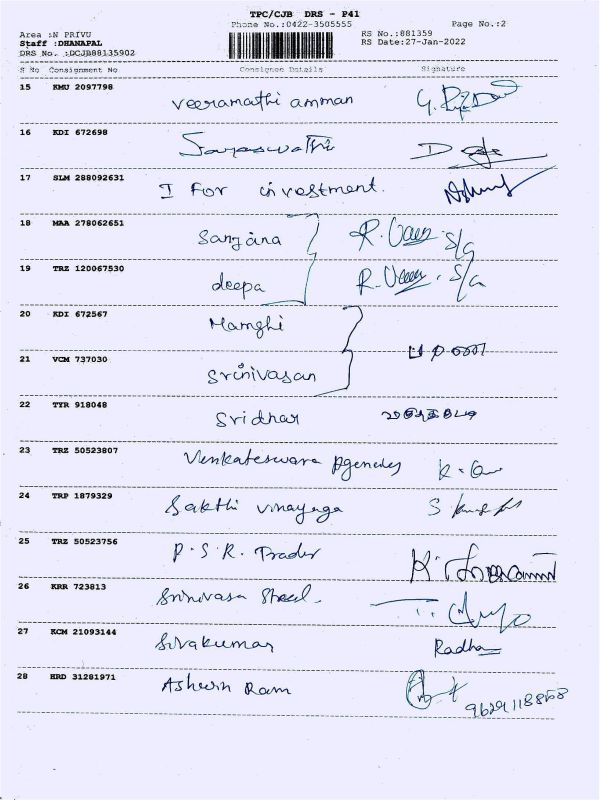 TPC/CJB DRS - P41
Phone No.:0422-3505555 Page No.:2
Area :N PRIVU RS No.:881359
Staff :DHANAPAL RS Date:27-Jan-2022
DRS No. :DCJB88135902
S No Consignment No Consignee Details Signature
15 KMU 2097798 veeramathi amman
16 KDI 672698 Saraswathi D
17 SLM 288092631 I For investment.
18 MAA 278062651 Sanjana R. S/G
19 TRZ 120067530 deepa R. S/G
20 KDI 672567 Mamghi
21 VCM 737030 Srinivasan
22 TYR 918048 Sridhar
23 TRZ 50523807 Venkateswara Agencies
24 TRP 1879329 Sakthi vinayaga S
25 TRZ 50523756 P.S.R. Trader K.
26 KRR 723813 Srinivasa Steel.
27 KCM 21093144 Sivakumar Radha
28 HRD 31281971 Ashwin Ram
9629118868